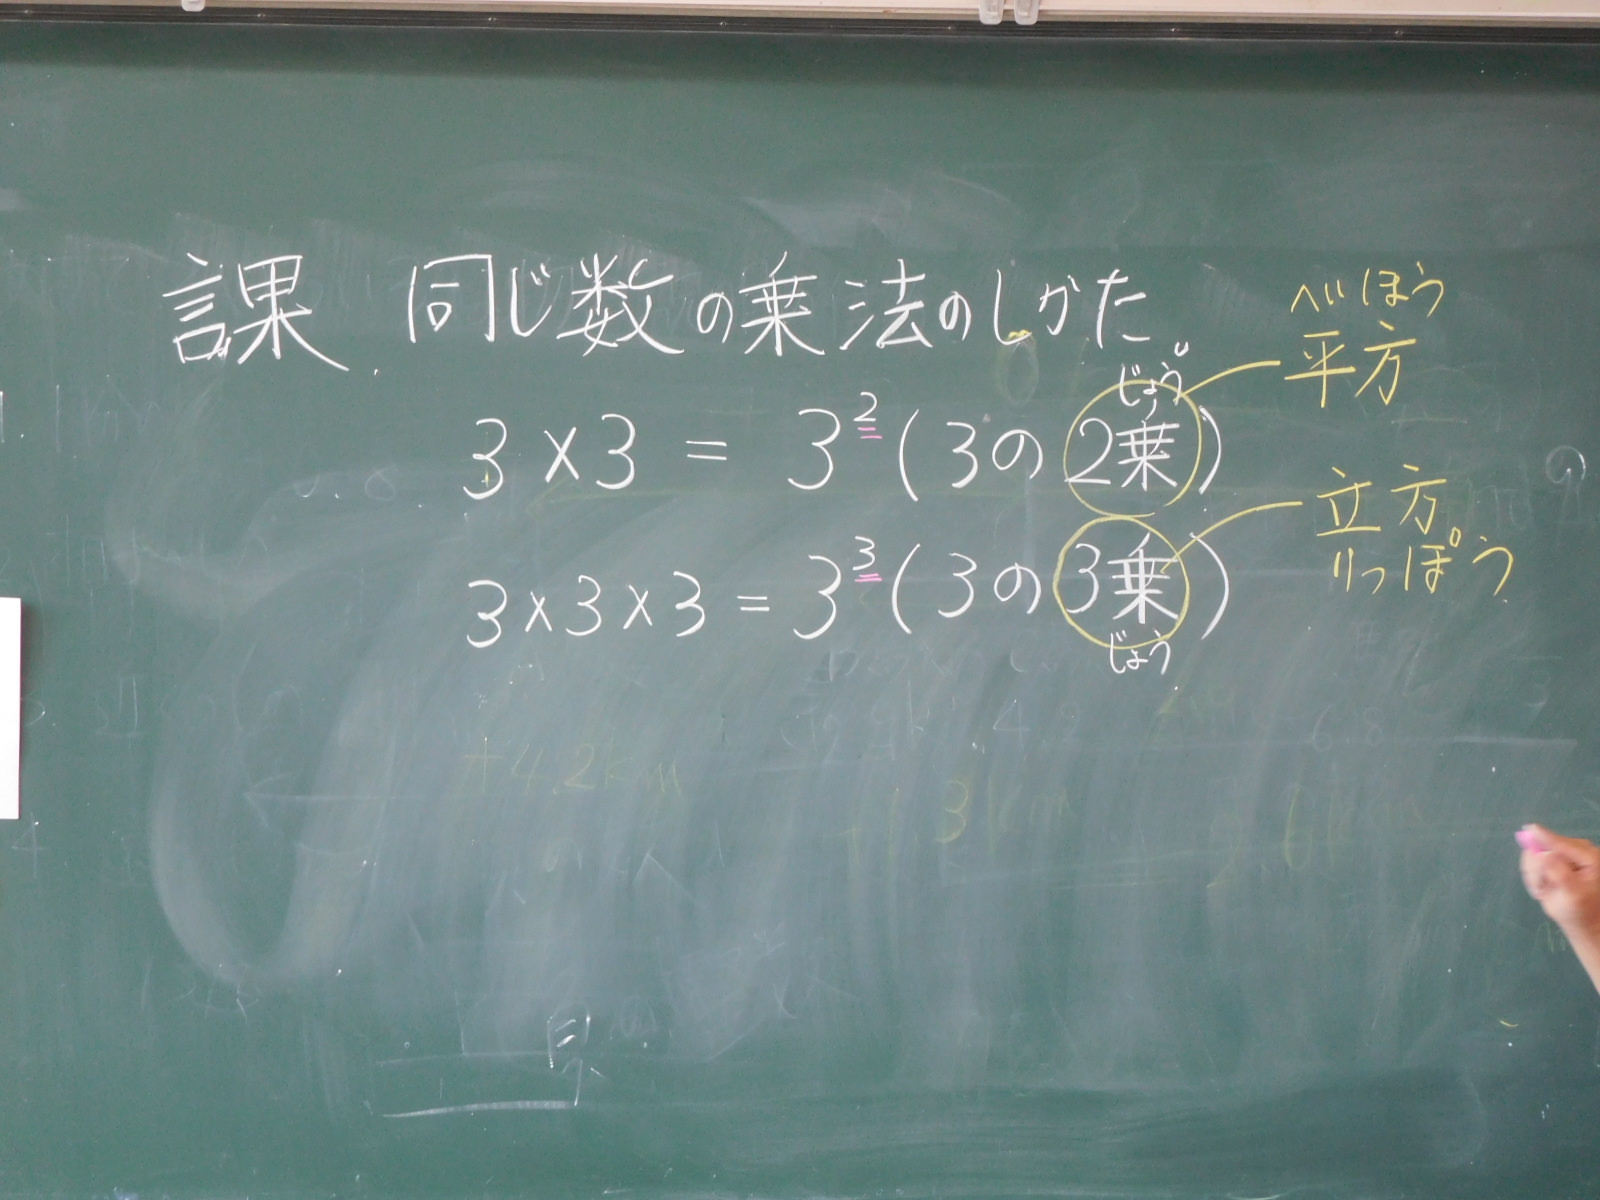 課. 同じ数の乗法のしかた。
3×3 = 3²(3の2乗)
じょう
へいほう
平方
3×3×3 = 3³(3の3乗)
じょう
立方
りっぽう